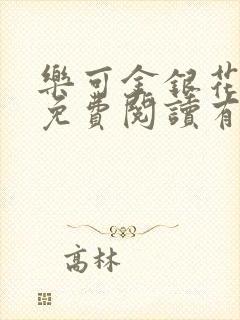 樂可金銀花
免費閱讀有
高林